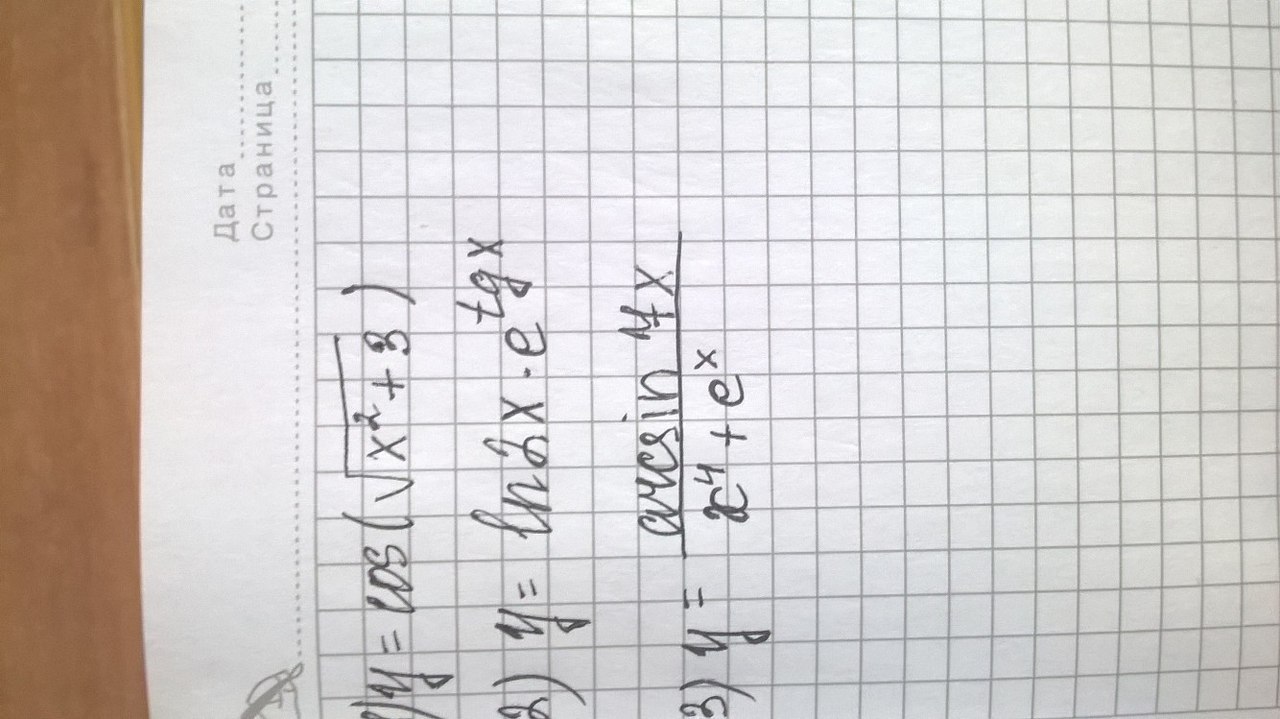 Дата
Страница
y = cos(√(x² + 3))
2) y = ln 2x · e^(tg x)
3) y = (arcsin 4x)/(x⁴ + eˣ)